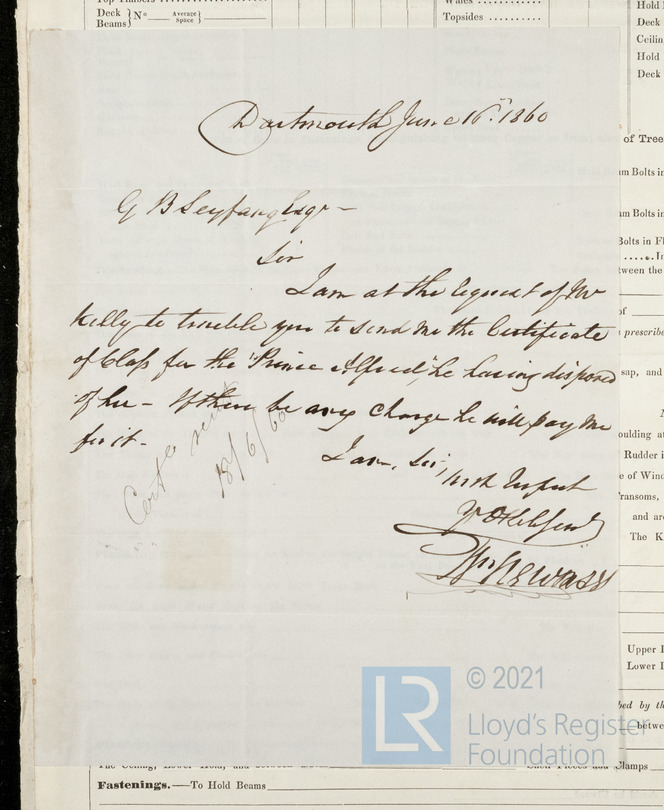 Top Timbers
Deck Beams} No Average Space}
Wales
Topsides
Hold
Deck
Ceilin
Hold
Deck
Dartmouth June 16th. 1860
of Tree
am Bolts in
G B Seyfang Esqr -
am Bolts in
Sir
Bolts in Fl
.....In
tween the
I am at the request of Mr
of
Kelly to trouble you to send me the Certificate
prescribe
of Class for the "Prince Alfred", he having disposed
sap, and
of her - If there be any Charge he will pay me
for it -
oulding at
Rudder i
I am, Sir,
e of Wind
with Respect
ransoms,
Yr Obt Servt
and ar
The K
Cert sent
18/6/60
Upper
Lower
© 2021
LR
Lloyd's Register
Foundation
bed by th
betwe
Clamps
Fastenings.—To Hold Beams